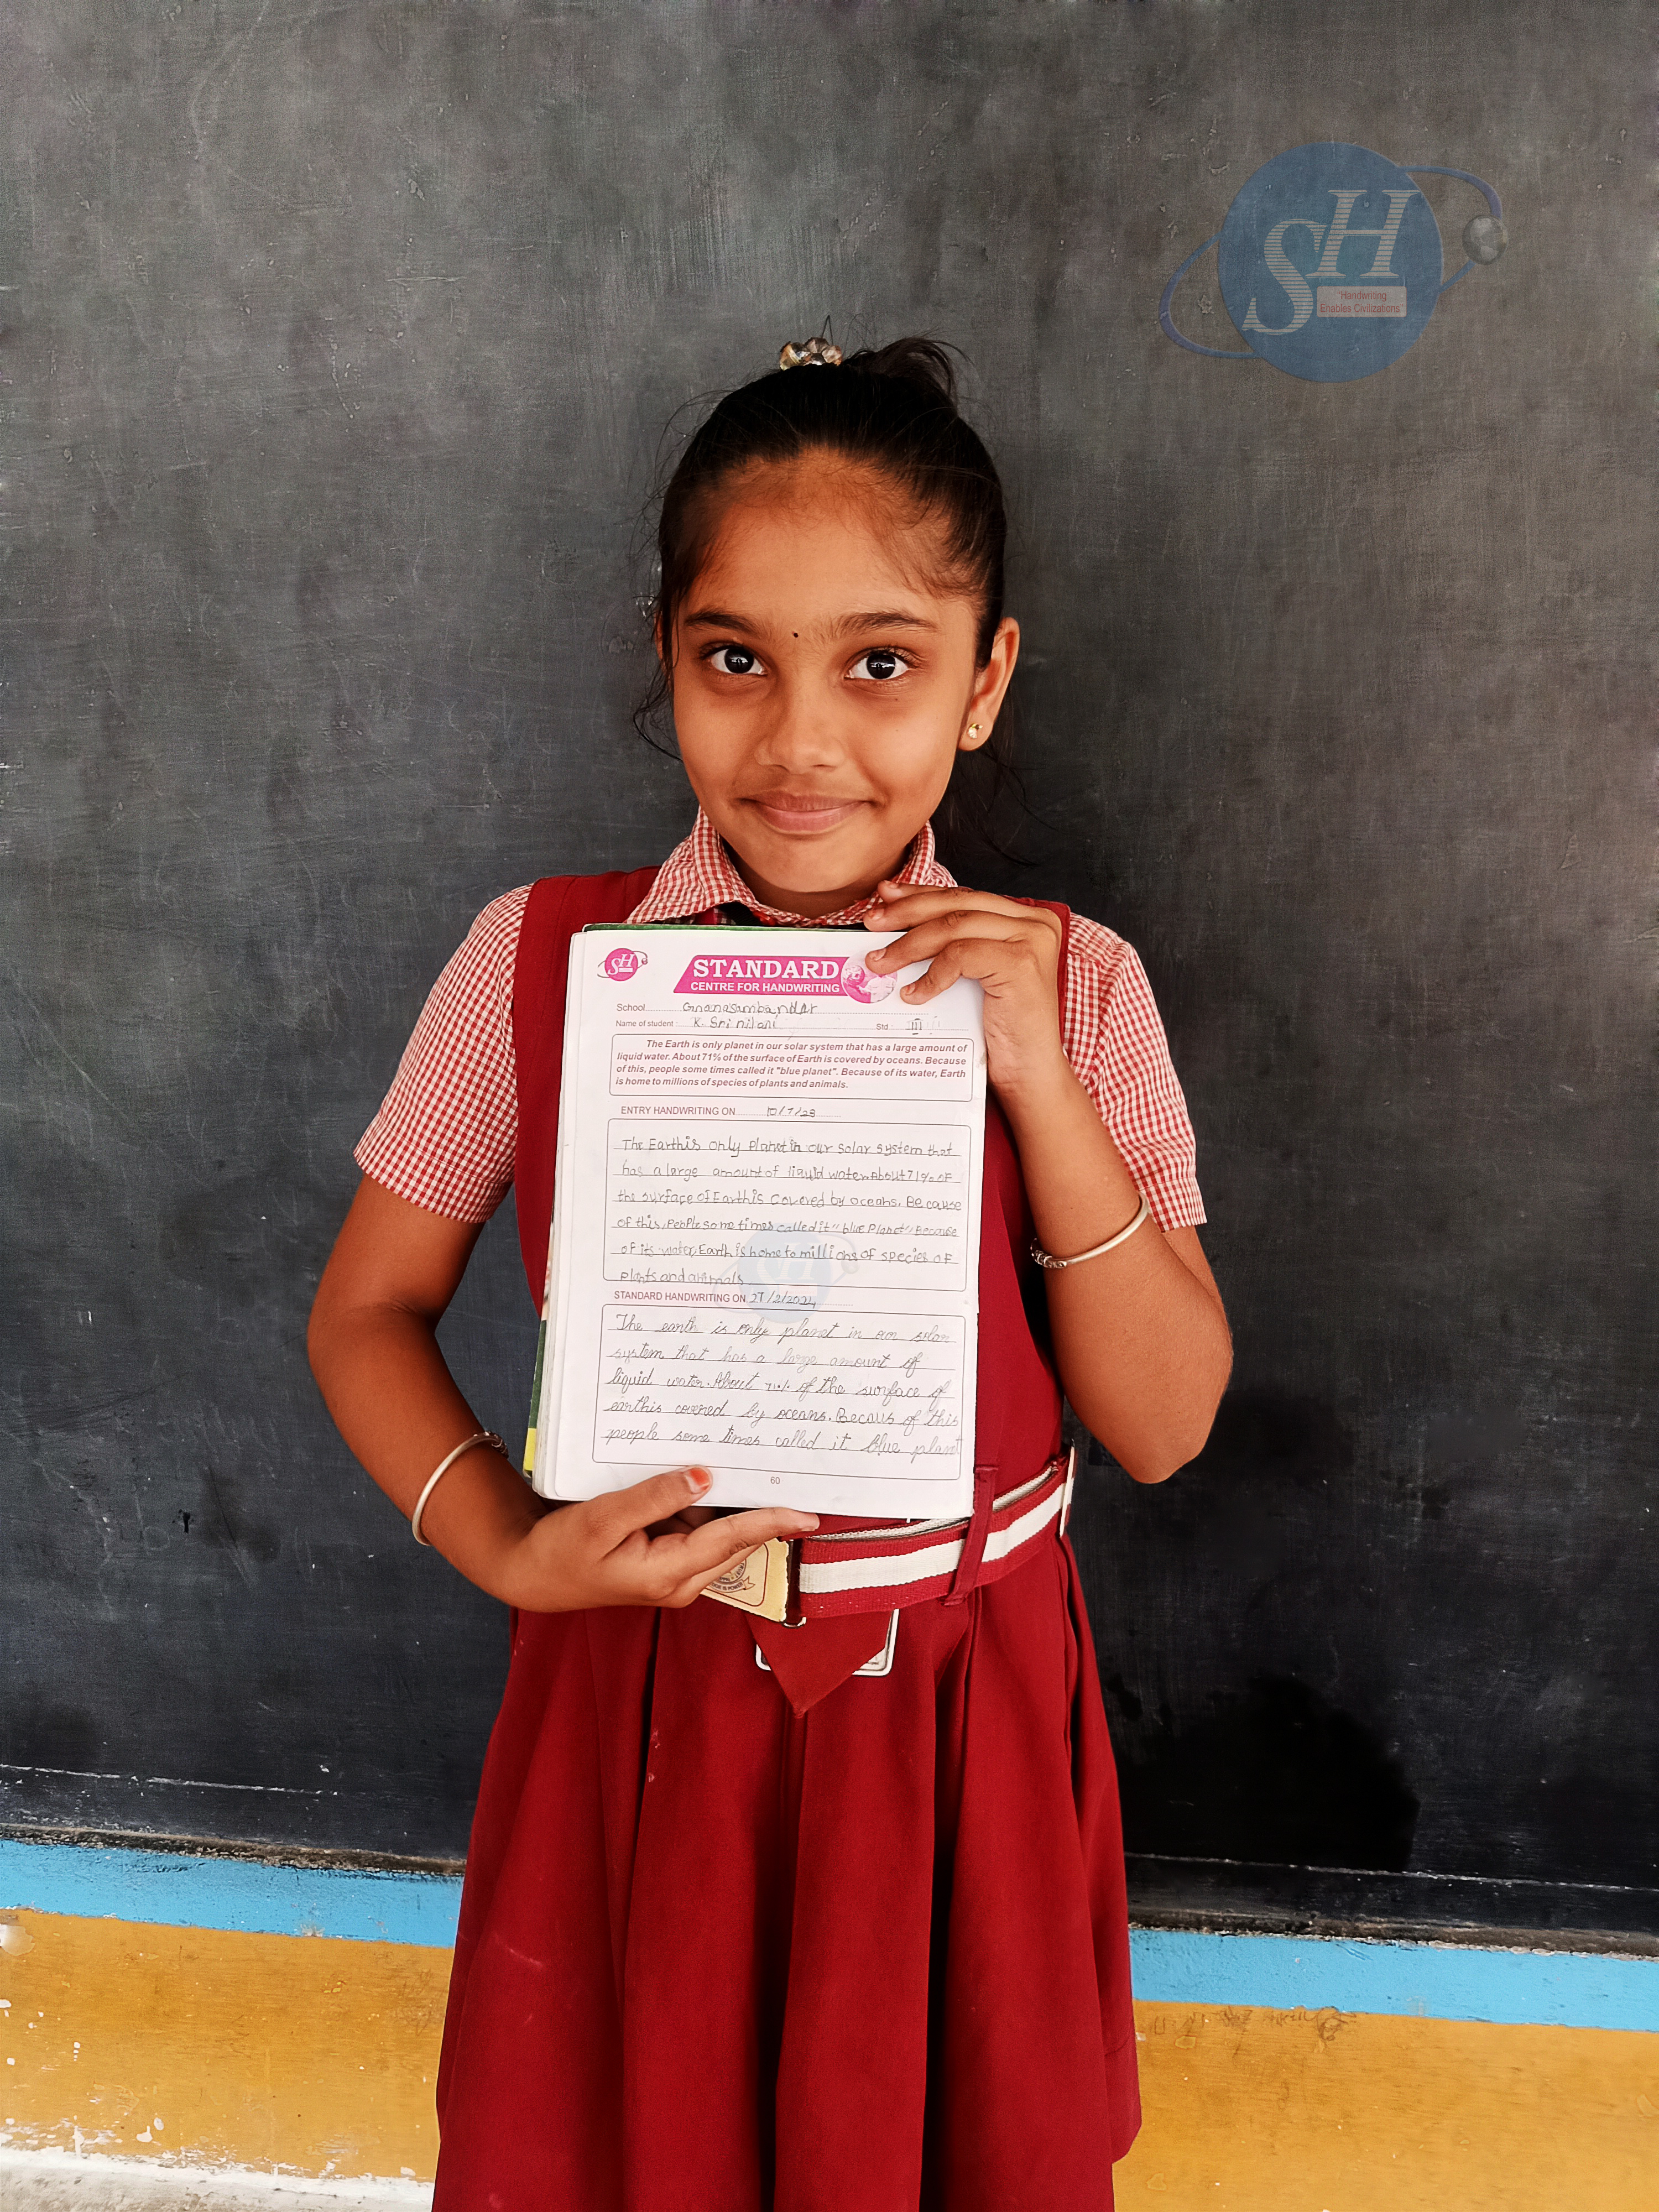 SH
"Handwriting
Enables Civilizations"
SH
STANDARD
CENTRE FOR HANDWRITING
School Gnanasambandar
Name of student : K. Sri nilani Std : III
The Earth is only planet in our solar system that has a large amount of
liquid water. About 71% of the surface of Earth is covered by oceans. Because
of this, people some times called it "blue planet". Because of its water, Earth
is home to millions of species of plants and animals.
ENTRY HANDWRITING ON 10/7/23
The Earth is only Planet in our solar system that
has a large amount of liquid water. About 71% of
the surface of Earth is covered by oceans. Be cause
of this, people some times called it "blue Planet". Because
of its water, Earth is home to millions of species of
plants and animals
STANDARD HANDWRITING ON 27/2/2024
The earth is only planet in our solar
system that has a large amount of
liquid water. About 71% of the surface of
earthis covered by oceans. Becaus of this
people some times called it blue plant
60